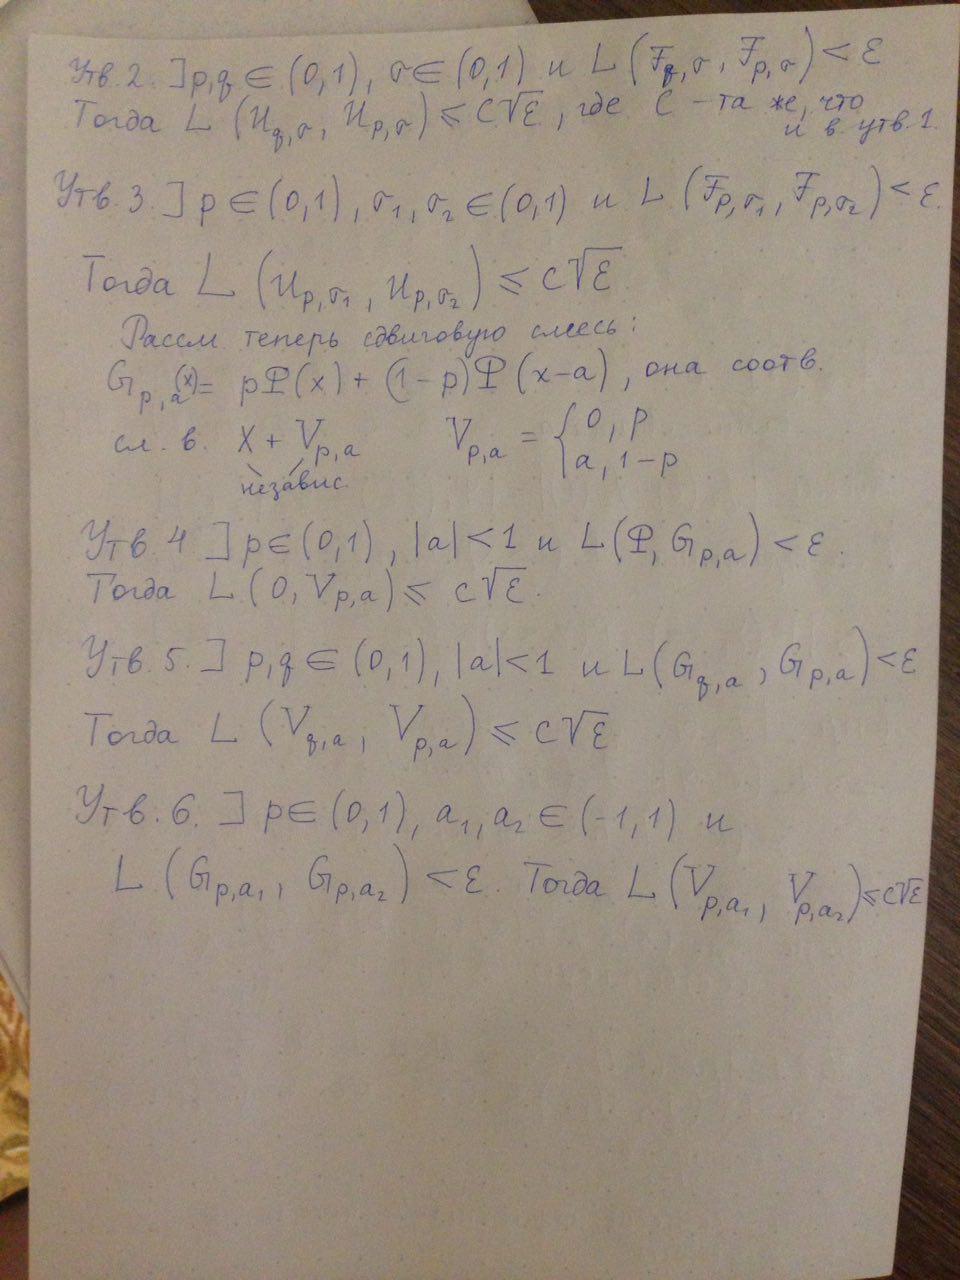 Утв. 2. ] p,q ∈ (0,1), σ ∈ (0,1) и L(F_{q,σ}, F_{p,σ}) < ε
Тогда L(U_{q,σ}, U_{p,σ}) ⩽ C√ε, где C – та же, что
и в утв. 1.
Утв. 3. ] p ∈ (0,1), σ_1, σ_2 ∈ (0,1) и L(F_{p,σ_1}, F_{p,σ_2}) < ε.
Тогда L(U_{p,σ_1}, U_{p,σ_2}) ⩽ C√ε
Рассм теперь сдвиговую смесь:
G_{p,a}(x) = pΦ(x) + (1-p)Φ(x-a), она соотв.
сл. в. X + V_{p,a} V_{p,a} = { 0, p
a, 1-p
независ.
Утв. 4 ] p ∈ (0,1), |a| < 1 и L(Φ, G_{p,a}) < ε.
Тогда L(0, V_{p,a}) ⩽ c√ε.
Утв. 5. ] p,q ∈ (0,1), |a| < 1 и L(G_{q,a}, G_{p,a}) < ε
Тогда L(V_{q,a}, V_{p,a}) ⩽ c√ε
Утв. 6. ] p ∈ (0,1), a_1, a_2 ∈ (-1,1) и
L(G_{p,a_1}, G_{p,a_2}) < ε. Тогда L(V_{p,a_1}, V_{p,a_2}) ⩽ c√ε